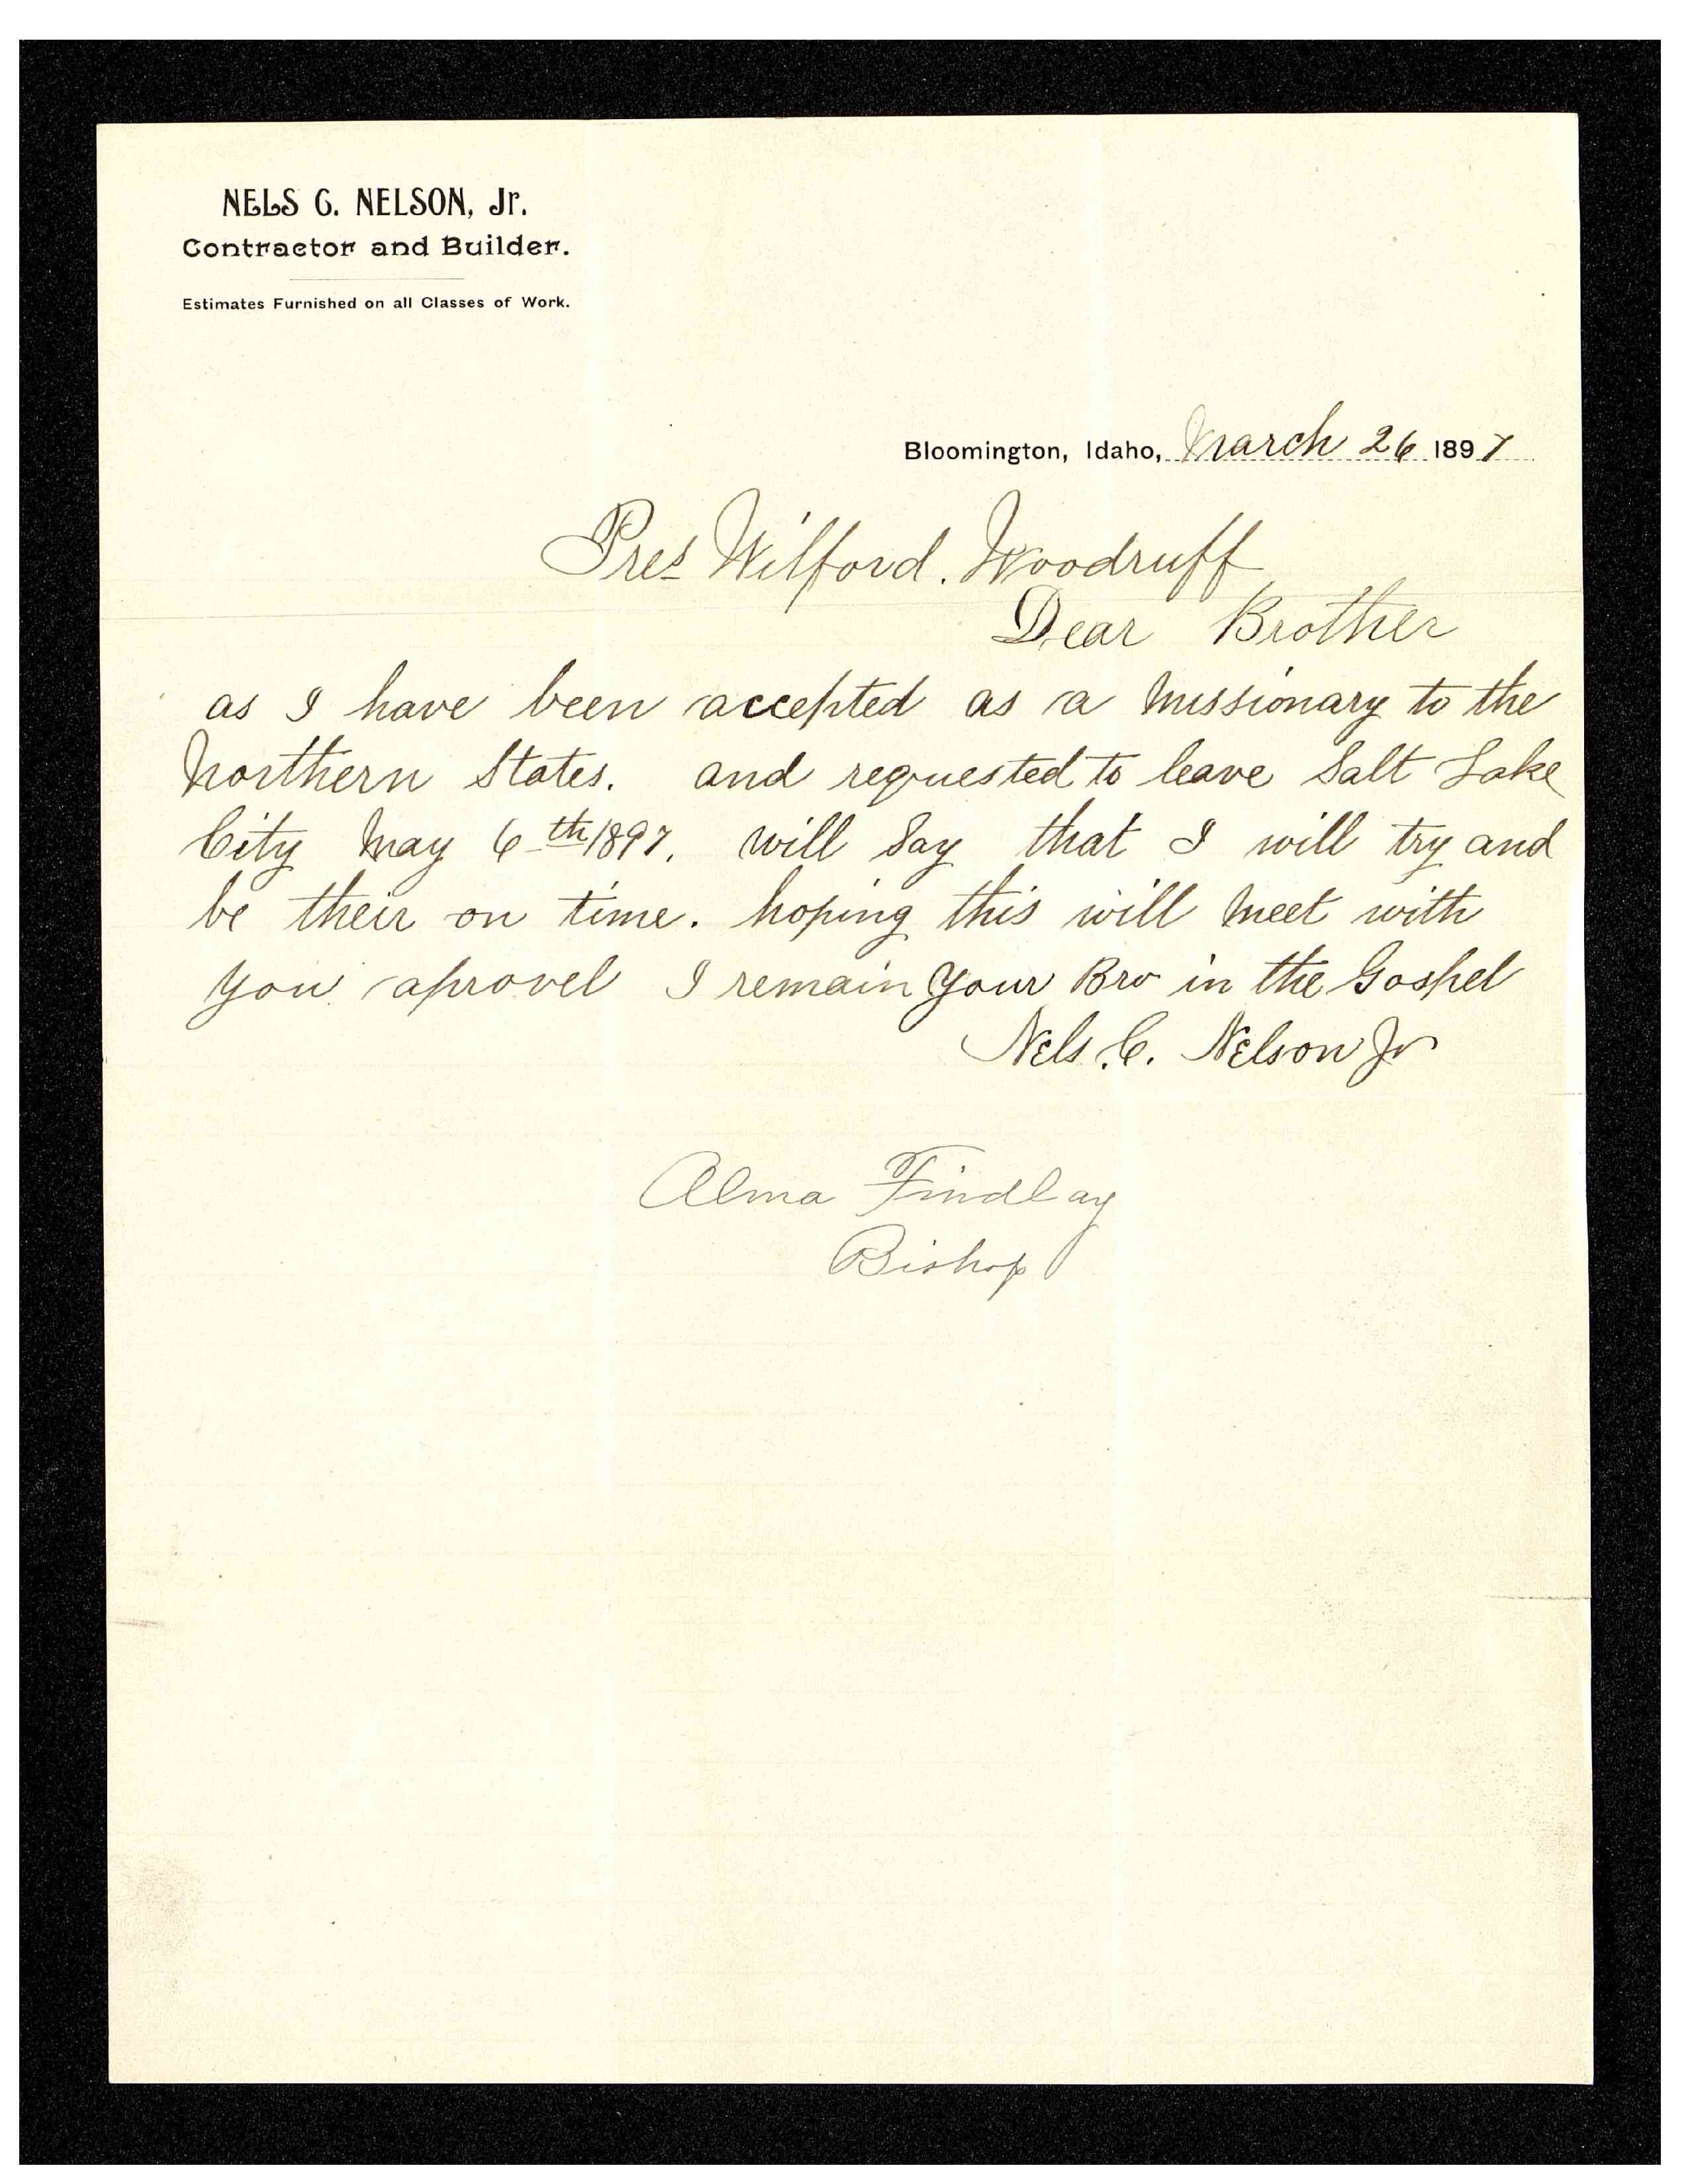 NELS C. NELSON, Jr.
Contractor and Builder.
Estimates Furnished on all Classes of Work.
Bloomington, Idaho, March 26 1897
Pres Wilford. Woodruff
Dear Brother
as I have been accepted as a Missionary to the
Northern States. and requested to leave Salt Lake
City May 6th 1897. will Say that I will try and
be their on time. hoping this will Meet with
you aprovel I remain your Bro in the Gospel
Nels. C. Nelson Jr
Alma Findlay
Bishop